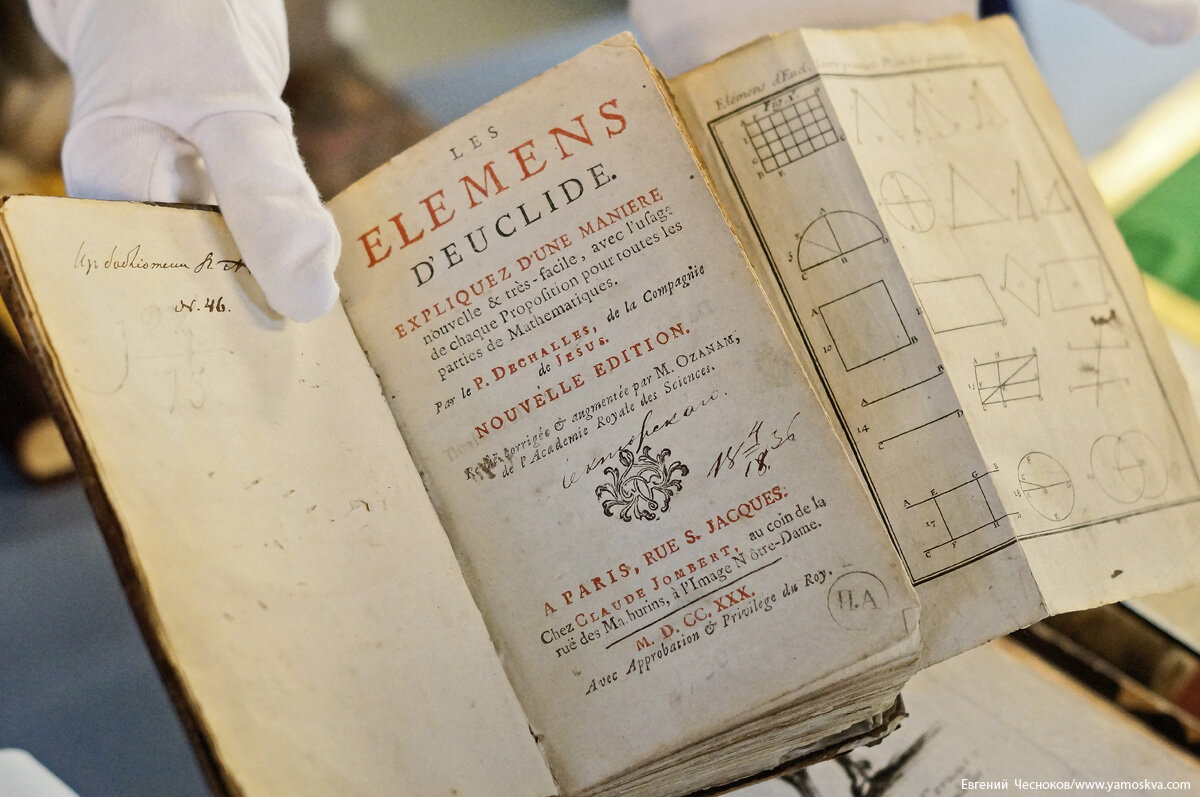 N. 46.
LES
ELEMENS
D'EUCLIDE.
EXPLIQUEZ D'UNE MANIERE
nouvelle & très-facile, avec l'uſage
de chaque Propoſition pour toutes les
parties de Mathematiques.
Par le P. DECHALLES, de la Compagnie
de JESUS.
NOUVELLE EDITION.
Revûë, corrigée & augmentée par M. OZANAM,
de l'Academie Royale des Sciences.
18 4/18. 36
A PARIS, RUE S. JACQUES.
Chez CLAUDE JOMBERT, au coin de la
ruë des Mathurins, à l'Image Nôtre-Dame.
M. D. CC. XXX.
Avec Approbation & Privilege du Roy.
П.А
Elemens d'Eucl
Евгений Чесноков/www.yamoskva.com